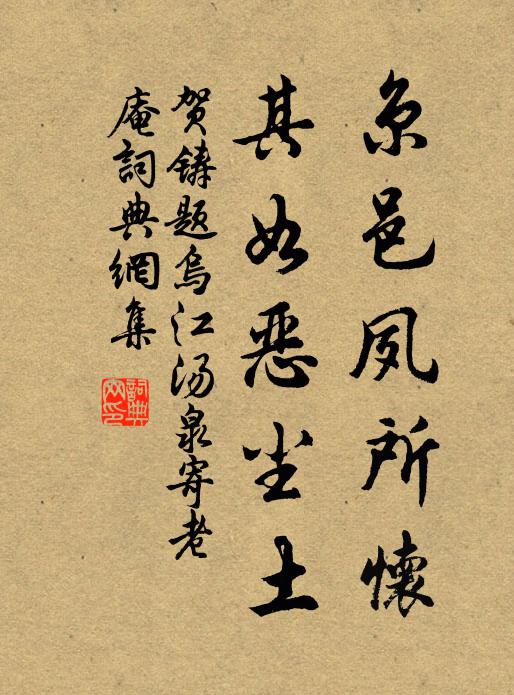 京邑夙所懷
其如惡尘土
贺鑄題烏江汤泉寄老
庵詞典網集
詞典网印